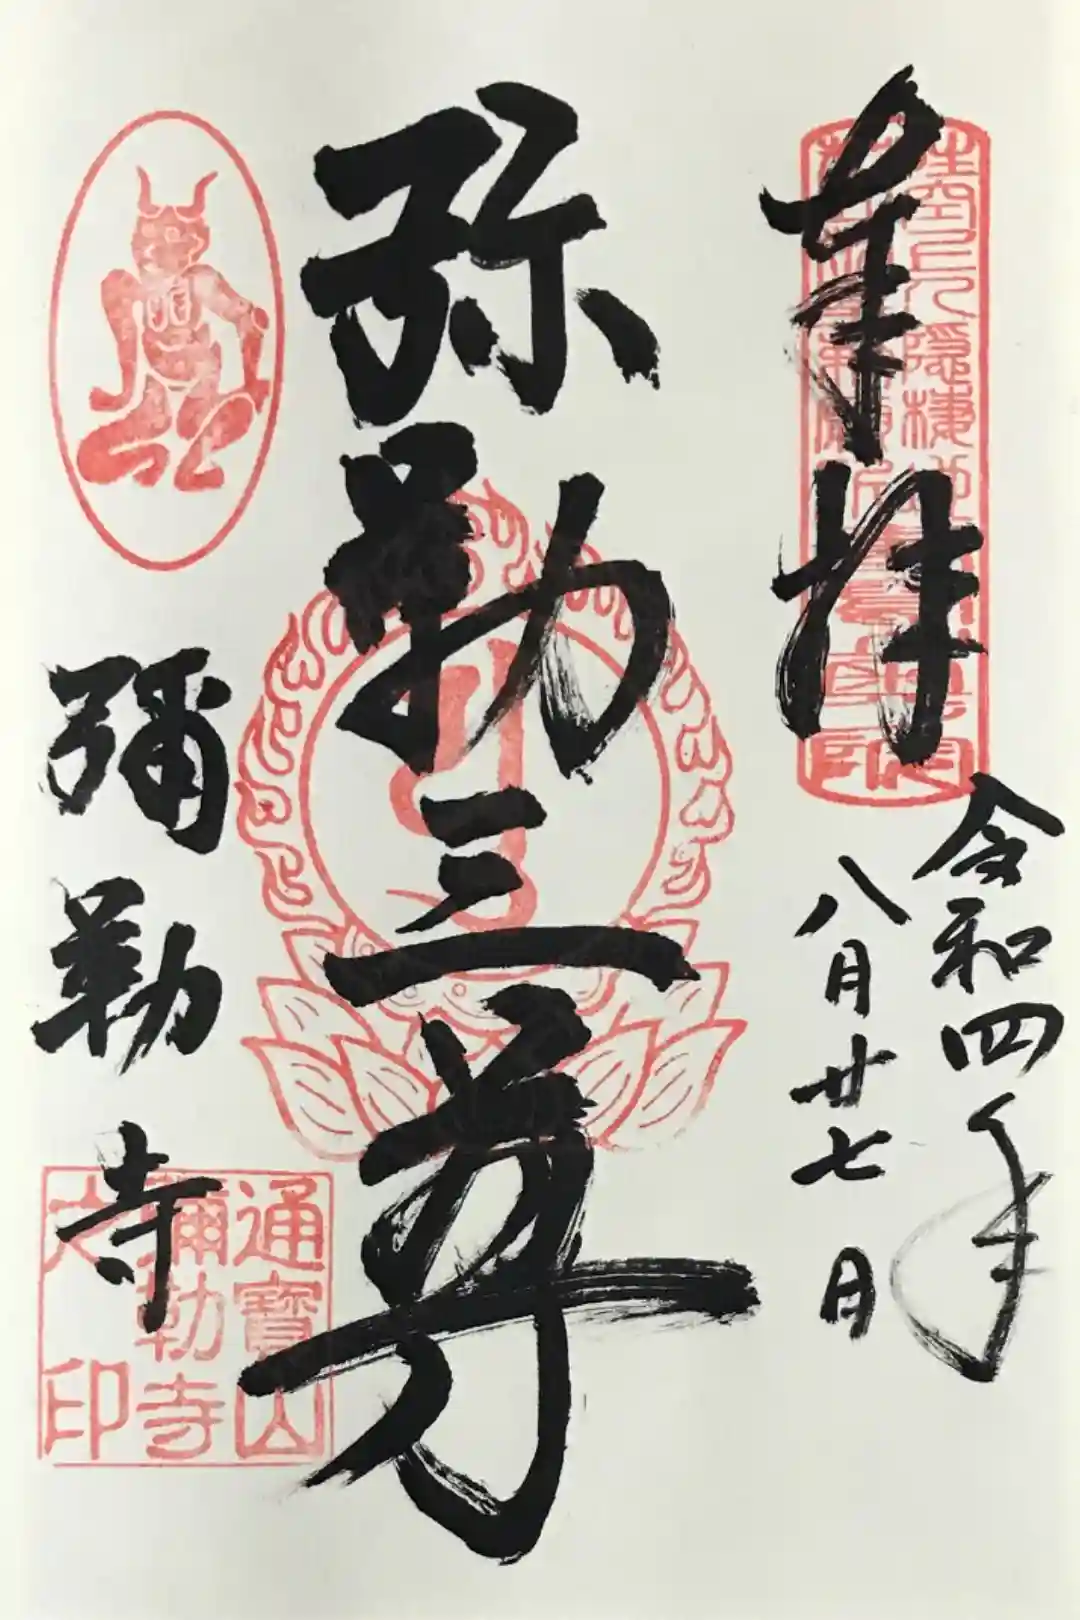 奉拝
令和四年
八月廿七日
弥勒三尊
彌勒寺
通寶山
彌勒寺
之印